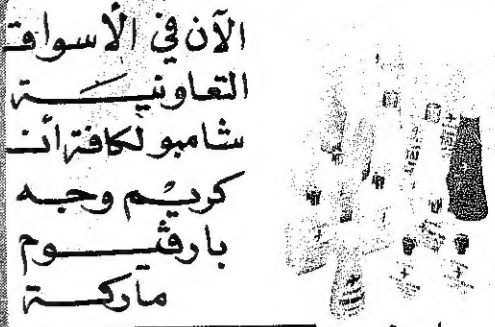 الآن في الأسواق
التعاونية
شامبو لكافة أنـ
كريم وجه
بارفوم
ماركة